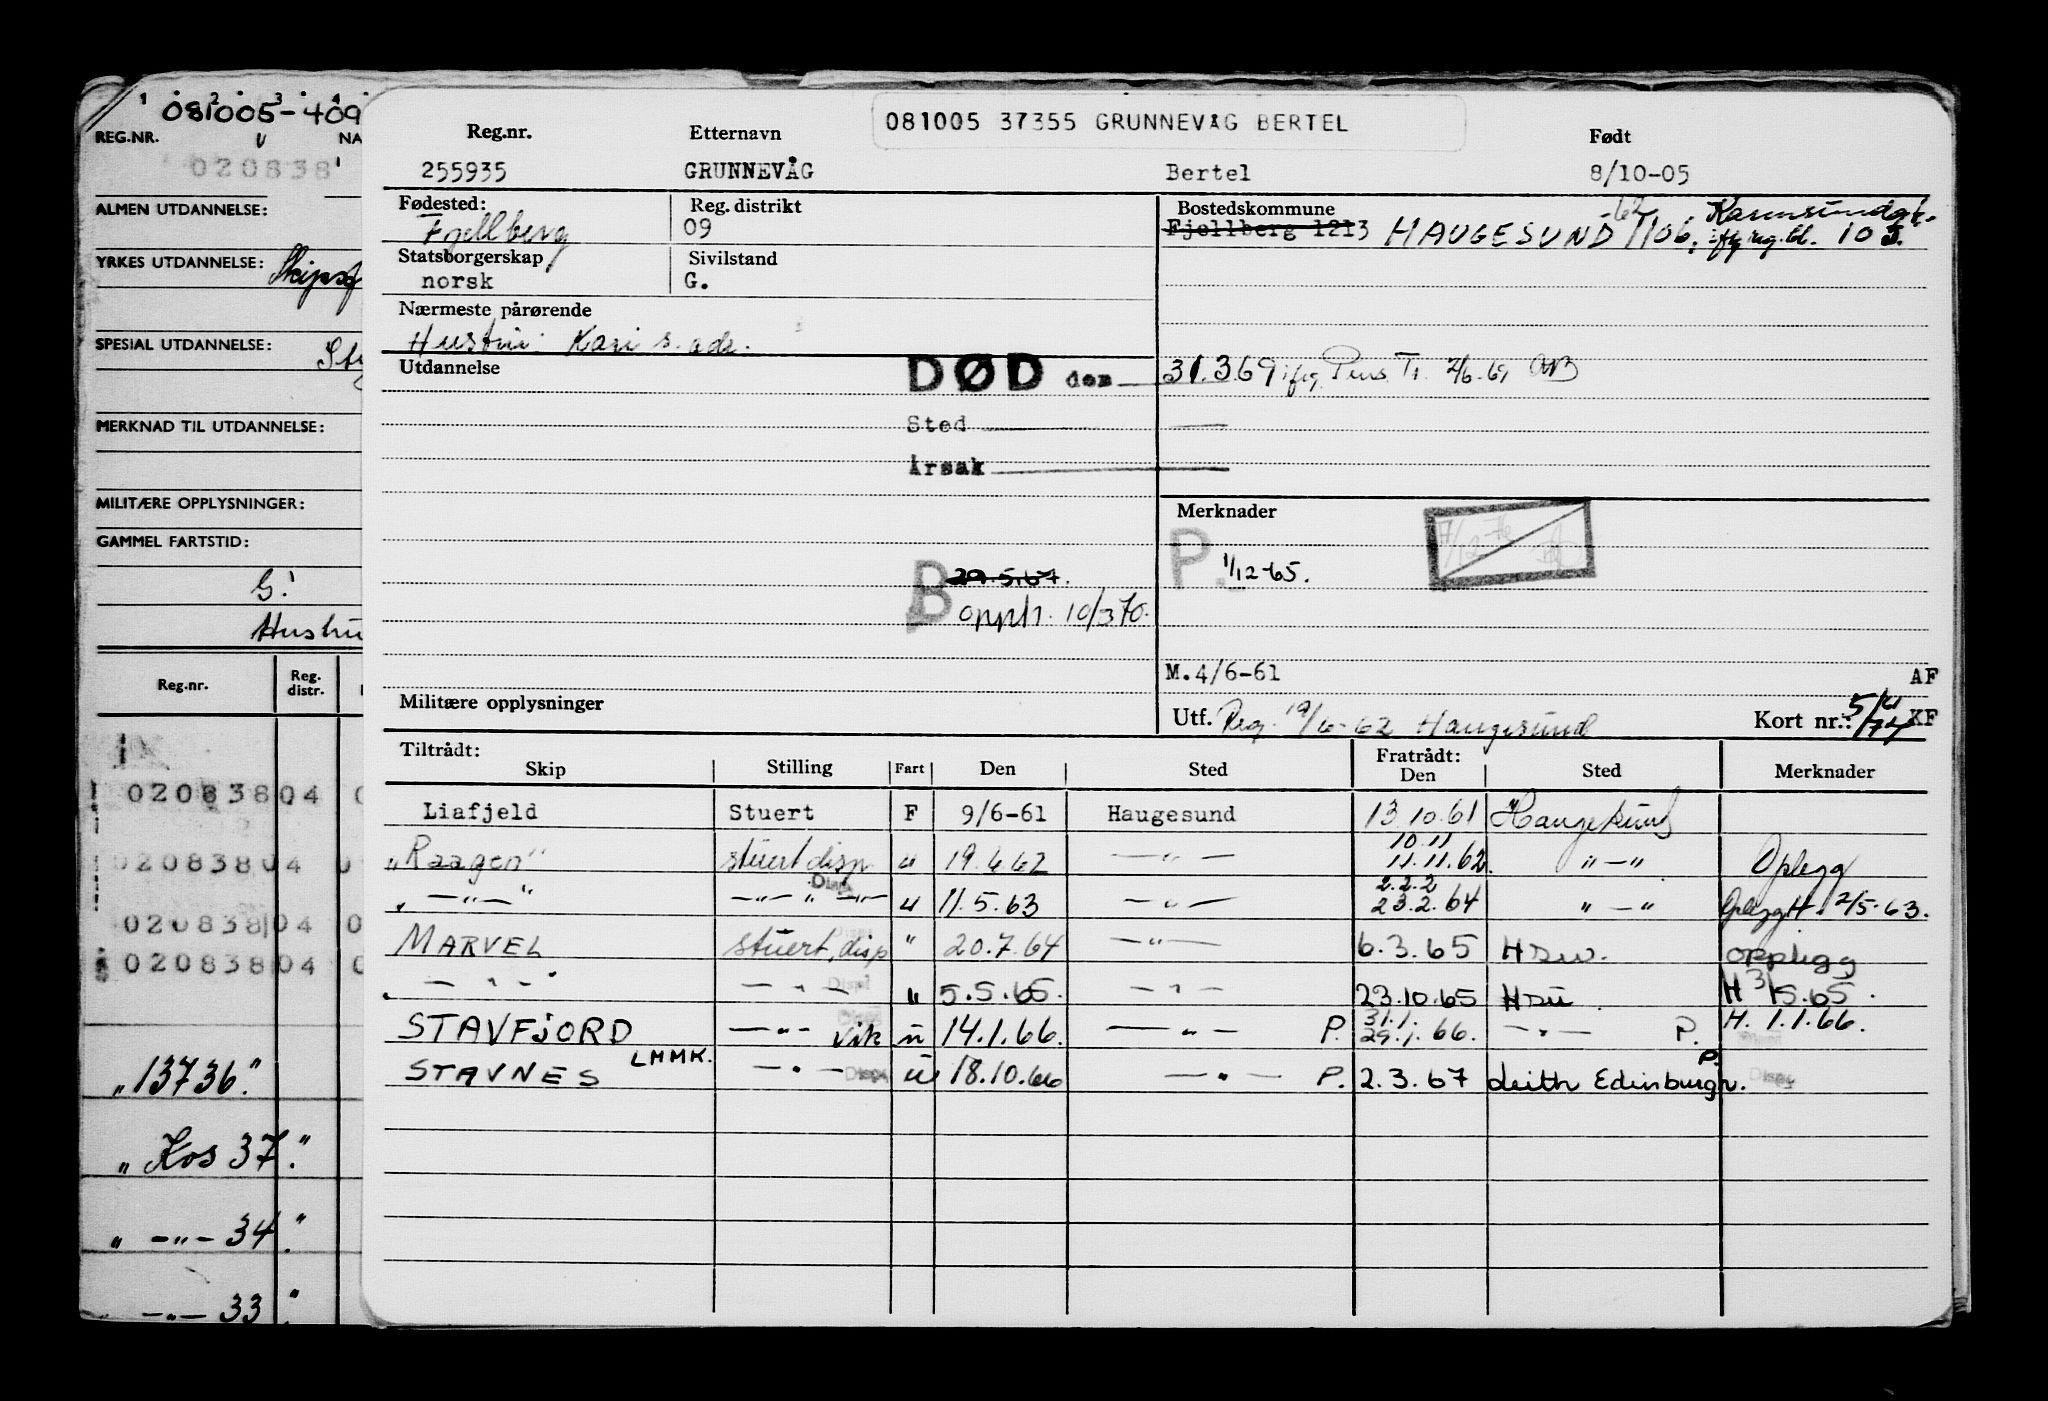 081005-409
REG.NR. NA
020838
ALMEN UTDANNELSE:
YRKES UTDANNELSE:
SPESIAL UTDANNELSE:
MERKNAD TIL UTDANNELSE:
MILITÆRE OPPLYSNINGER:
GAMMEL FARTSTID:
G!
Hustru
Reg.nr. Reg. distr.
02083804 0
02083804 0
02083804 0
02083804 0
"13736."
"Kos 37."
" —"— 34."
—"— 33."
081005 37355 GRUNNEVÅG BERTEL
Reg.nr. Etternavn Født
255935 GRUNNEVÅG Bertel 8/10-05
Fødested: Reg. distrikt Bostedskommune
Fjellberg 09 Fjellberg 1213 HAUGESUND 1106.
Statsborgerskap Sivilstand
norsk G.
Nærmeste pårørende
Hustru: Kari s. adr.
Utdannelse
DØD den 31.3.69
Sted
Årsak
Merknader
P. 1/12-65.
B 29.5.67.
opph. 10/3.70.
M.4/6-61 AF
Militære opplysninger
Utf. Reg. 19/6-62 Haugesund Kort nr.: KF
Tiltrådt: Fratrådt:
Skip Stilling Fart Den Sted Den Sted Merknader
Liafjeld Stuert F 9/6-61 Haugesund 13.10.61 Haugesund
"Raagen" stuert disp " 19.6.62 —"— 10.11 11.11.62. "—" Oplegg
" —"— " —"— " —"— " 11.5.63 —"— 2.2.2 23.2.64 "—" Oplegg H. 2/5-63.
MARVEL stuert, disp " 20.7.64 —"— 6.3.65 opplegg
—"— —"— " 5.5.65. —"— 23.10.65 H 3/5.65.
STAVFJORD —"— vik u 14.1.66. —"— P. 31.1. 29.1.66. —"— P. H. 1.1.66.
STAVNES LMMK. —"— u 18.10.66 —"— P. 2.3.67 Leith Edinburgh. P.